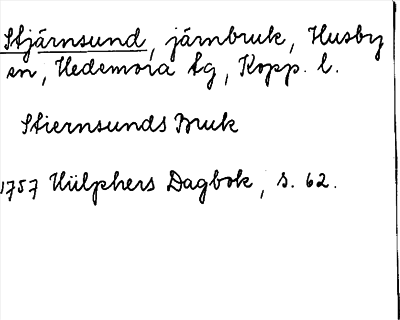 Stjärnsund, järnbruk, Husby
sn, Hedemora tg, Kopp. l.
Stiernsunds Bruk
1757 Hülphers Dagbok, s. 62.